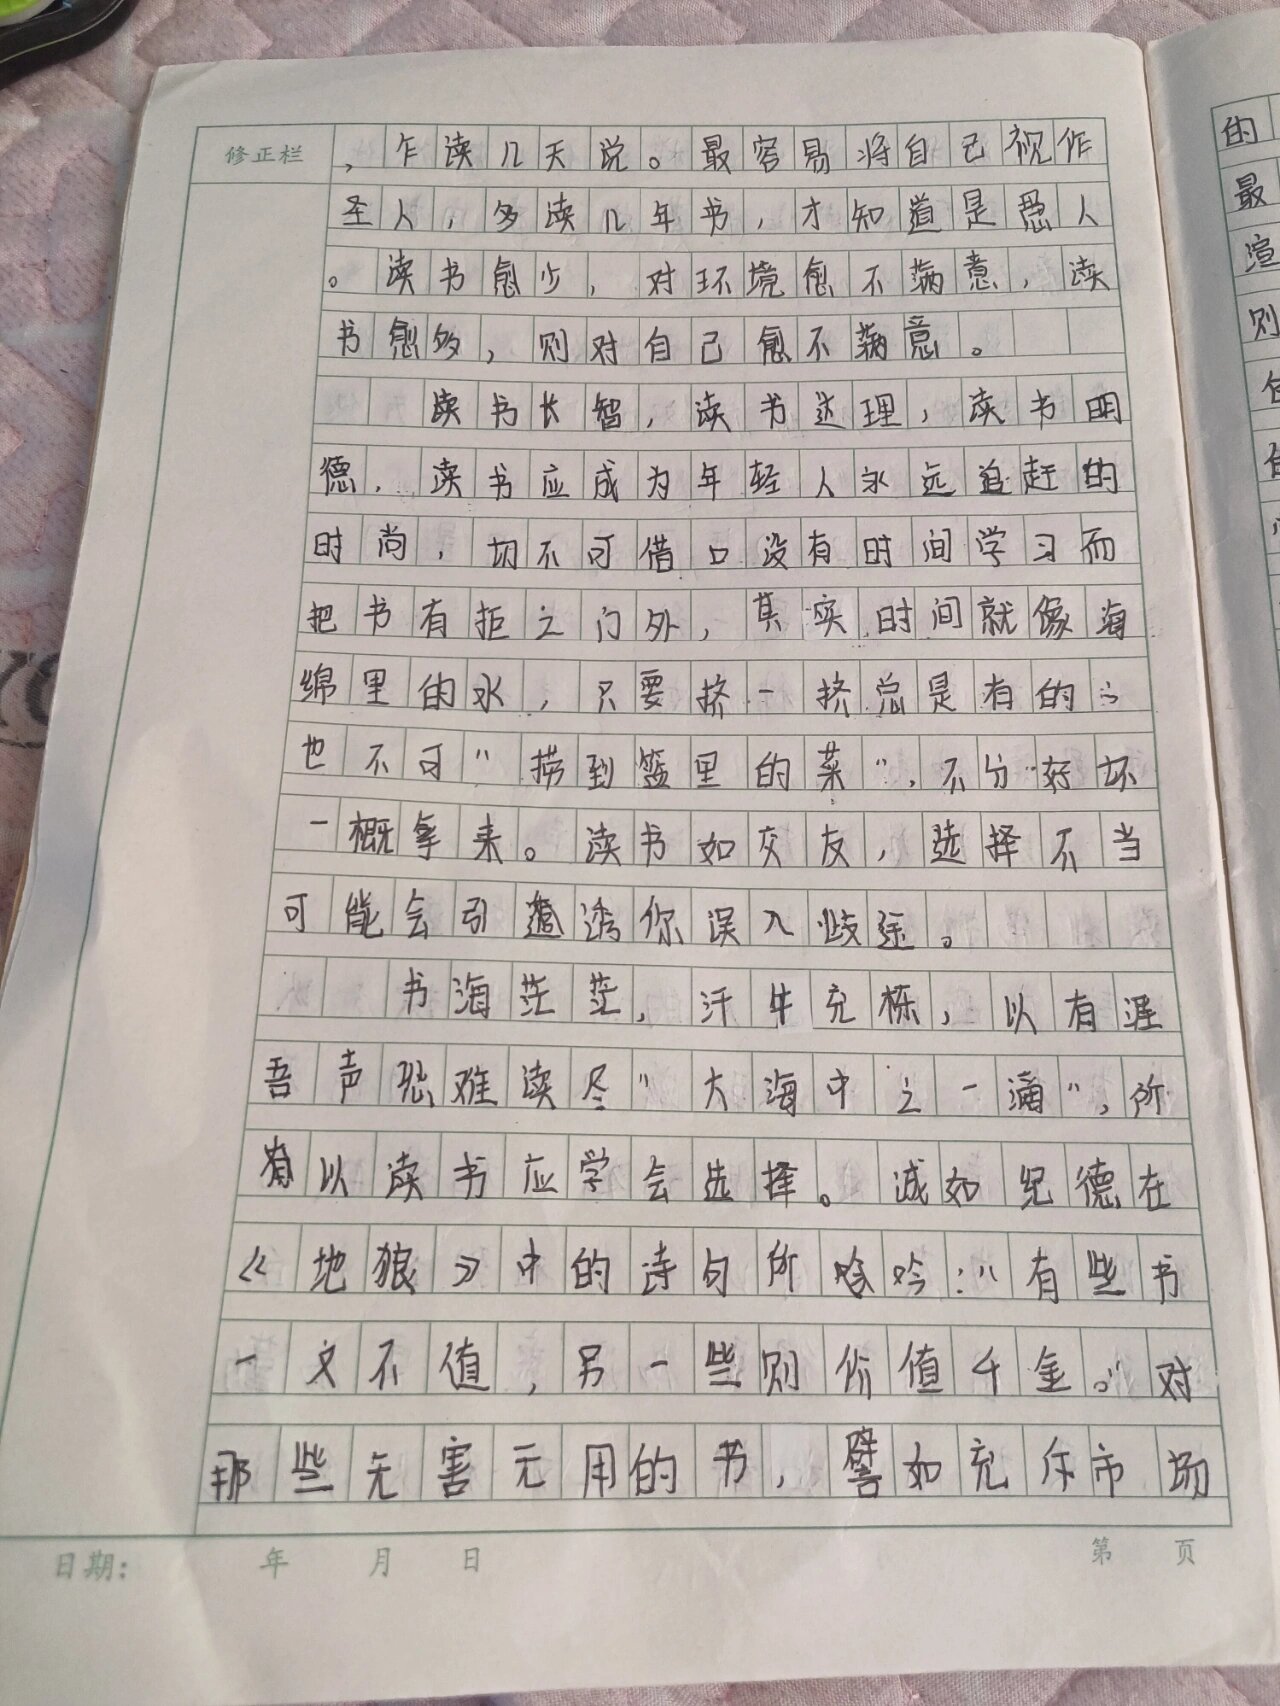 修正栏
,乍读几天说。最容易将自己视作
圣人,多读几年书,才知道是愚人
。读书愈少,对环境愈不满意,读
书愈多,则对自己愈不满意。
读书长智,读书达理,读书明
德,读书应成为年轻人永远追赶的
时尚,切不可借口没有时间学习而
把书有拒之门外,其实时间就像海
绵里的水,只要挤一挤总是有的;
也不可"捞到篮里的菜",不分好坏
一概拿来。读书如交友,选择不当
可能会引诱你误入歧途。
书海茫茫,汗牛充栋,以有涯
吾声恐难读尽"大海中之一滴",所
以读书应学会选择。诚如纪德在
《地狼》中的诗句所吟:"有些书
一文不值,另一些则价值千金。"对
那些无害无用的书,譬如充斥市场
日期: 年 月 日
第 页
的
最
渲
则